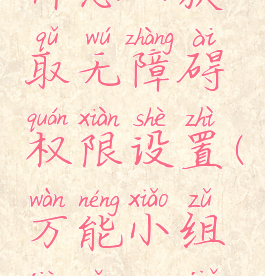 qǔ wú zhàng ài
取无障碍
quán xiàn shè zhì
权限设置(
wàn néng xiǎo zǔ
万能小组